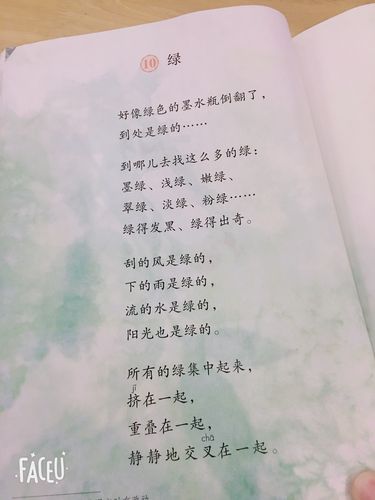 10 绿
好像绿色的墨水瓶倒翻了，
到处是绿的……
到哪儿去找这么多的绿：
墨绿、浅绿、嫩绿、
翠绿、淡绿、粉绿……
绿得发黑、绿得出奇。
刮的风是绿的，
下的雨是绿的，
流的水是绿的，
阳光也是绿的。
所有的绿集中起来，
jǐ
挤在一起，
重叠在一起，
chā
静静地交叉在一起。
FACEU